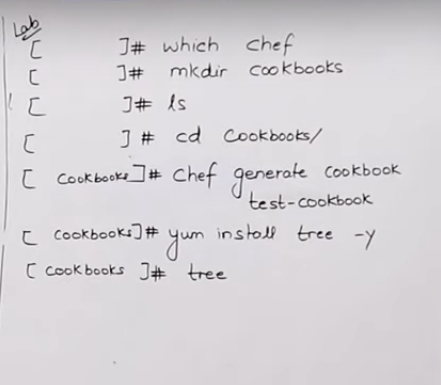 Lab
[ ]# which chef
[ ]# mkdir cookbooks
[ ]# ls
[ ]# cd Cookbooks/
[ Cookbooks]# Chef generate cookbook
test-cookbook
[ cookbooks]# yum install tree -y
[ cookbooks ]# tree